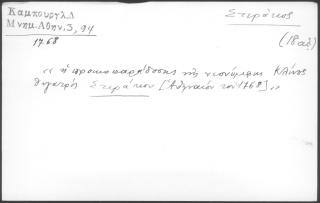 Καμπουργλ.Δ
Μνημ.Αθην.3,94
1768
Στεράκος
(18 αἰ)
« ἡ προικοπαράδοσις τῆς νεονύμφης Κλάνος
θυγατρός Στεράκου [Ἀθηναίου τοῦ 1768] »